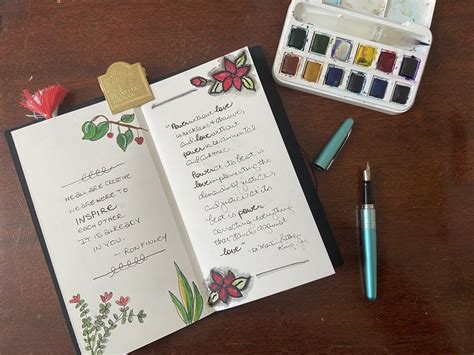 WE ALL ARE CREATIVE
WE ARE HERE TO
INSPIRE
EACH OTHER
IT IS ALREADY
IN YOU.
~ RON FINLEY
"Power without love
is reckless & abusive,
and love without
power is sentimental
and anemic.
Power at its best is
love implementing the
demands of justice,
and justice at its
best is power
correcting everything
that stands against
love" ~ Dr Martin Luther
King, Jr.